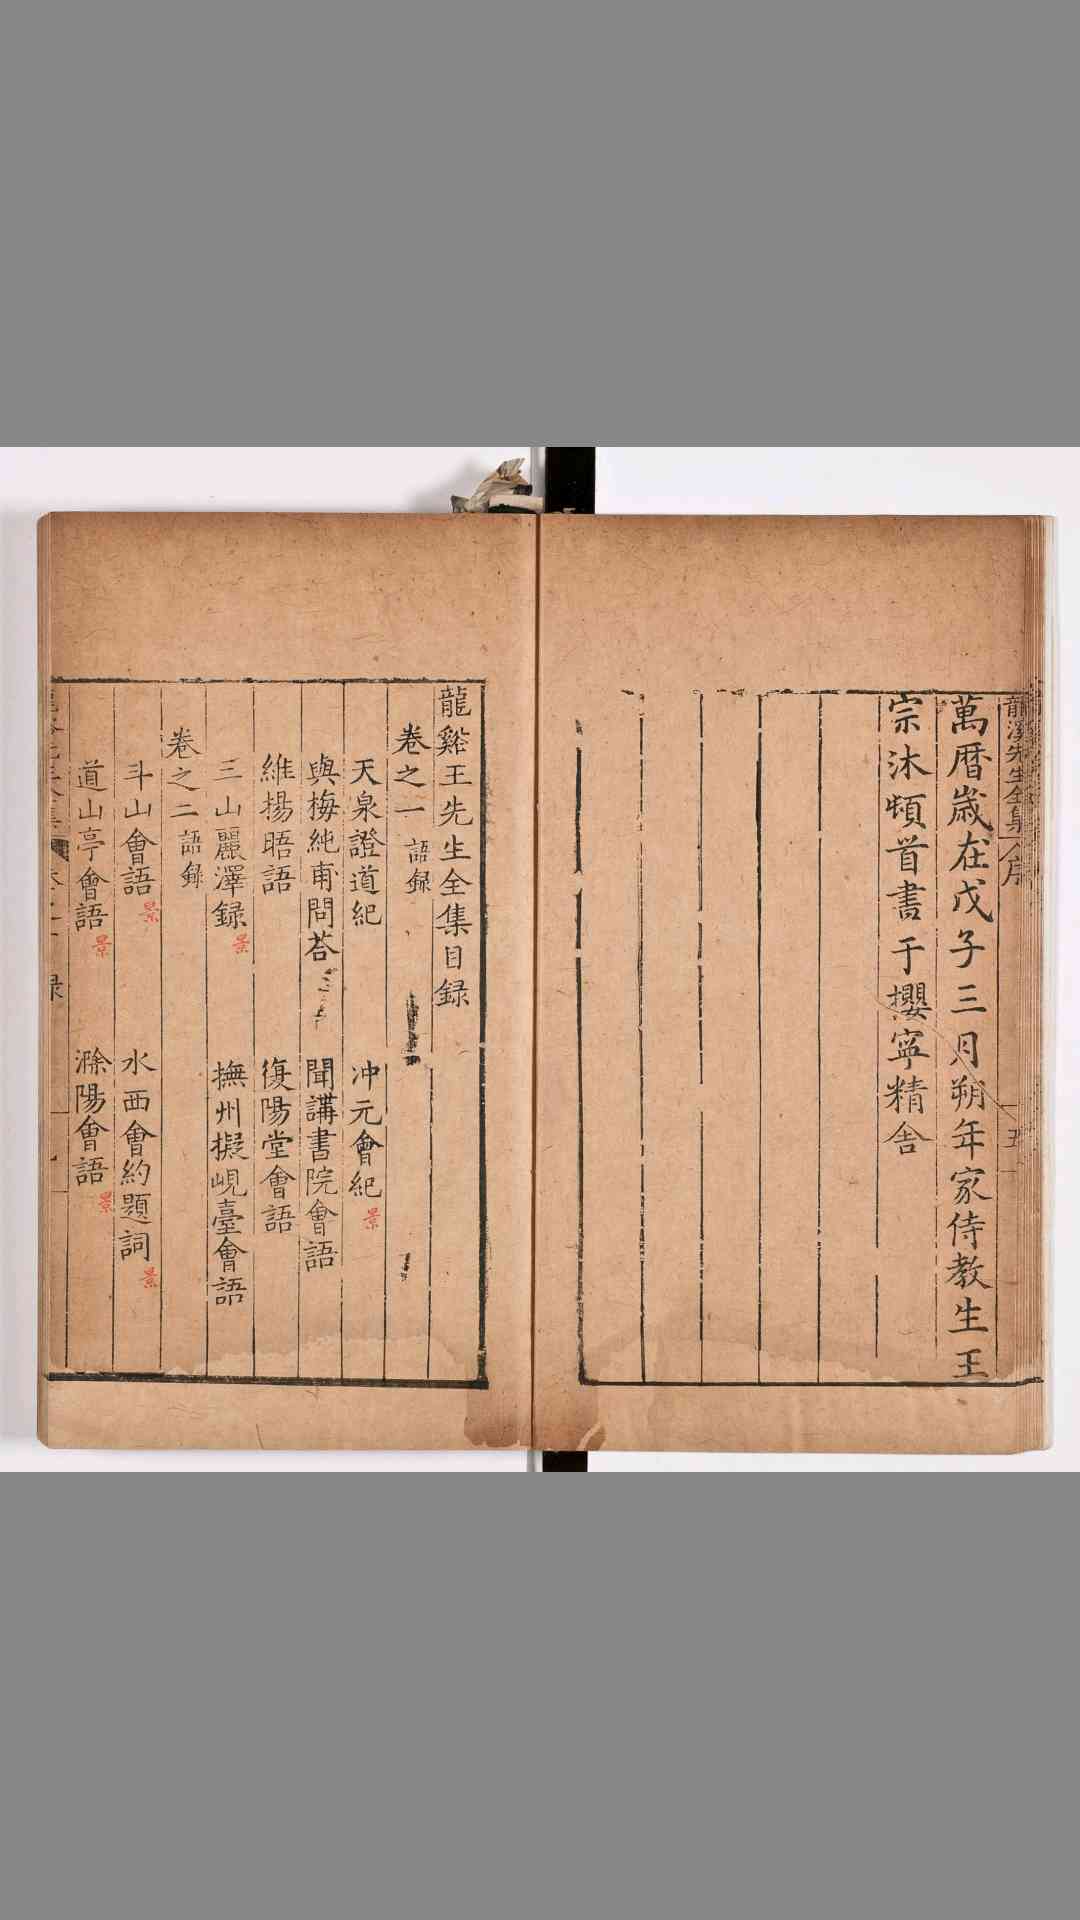 龍溪先生全集 序
萬暦歲在戊子三月朔年家侍教生王
宗沐頓首書于攖寧精舍
龍谿王先生全集目録
卷之一 語録
天泉證道紀 冲元會紀 景
與梅純甫問荅 聞講書院會語
維揚晤語 復陽堂會語
三山麗澤録 景 撫州擬峴臺會語
卷之二 語録
斗山會語 景 水西會約題詞 景
道山亭會語 景 滁陽會語 景